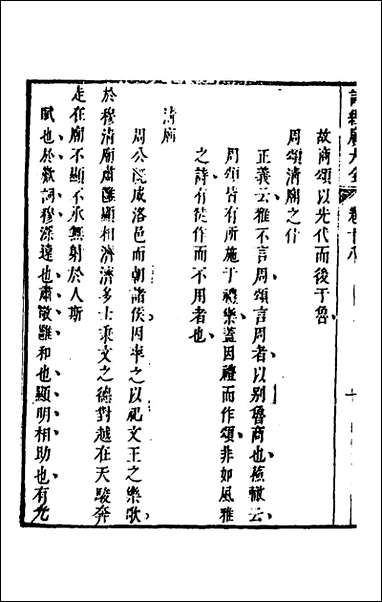 詩經
大全
故商頌以先代而後于魯
周頌清廟之什
正義云雅不言周頌言周者以别魯商也蘇轍云
周頌皆有所施于禮樂蓋因禮而作頌非如風雅
之詩有徒作而不用者也
清廟
周公旣成洛邑而朝諸侯因率之以祀文王之樂歌
於穆清廟肅雝顯相濟濟多士秉文之德對越在天駿奔
走在廟不顯不承無射於人斯
賦也於歎詞穆深遠也肅敬雝和也顯明相助也有光